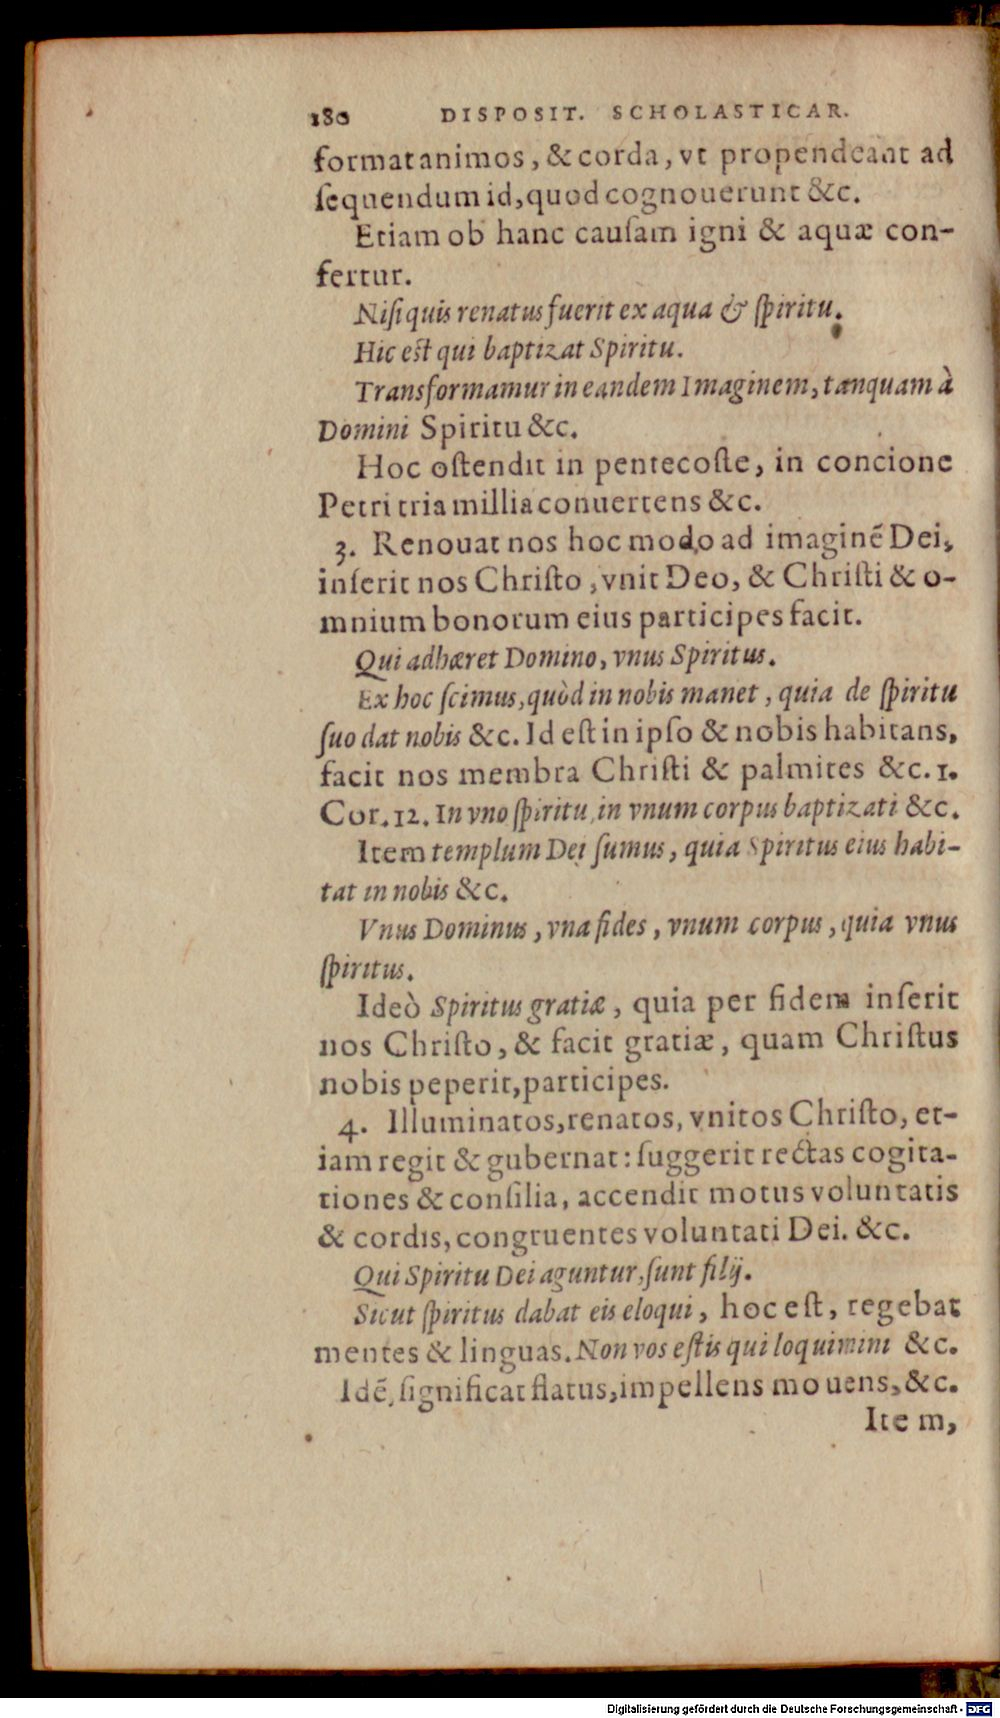 180 DISPOSIT. SCHOLASTICAR.
format animos, & corda, vt propendeant ad
ſequendum id, quod cognouerunt &c.
Etiam ob hanc cauſam igni & aquæ con-
fertur.
Niſi quis renatus fuerit ex aqua & ſpiritu.
Hic eſt qui baptizat Spiritu.
Transformamur in eandem Imaginem, tanquam à
Domini Spiritu &c.
Hoc oſtendit in pentecoſte, in concione
Petri tria millia conuertens &c.
3. Renouat nos hoc modo ad imaginẽ Dei,
inſerit nos Chriſto, vnit Deo, & Chriſti & o-
mnium bonorum eius participes facit.
Qui adhæret Domino, vnus Spiritus.
Ex hoc ſcimus, quòd in nobis manet, quia de ſpiritu
ſuo dat nobis &c. Id eſt in ipſo & nobis habitans,
facit nos membra Chriſti & palmites &c. 1.
Cor. 12. In vno ſpiritu in vnum corpus baptizati &c.
Item templum Dei ſumus, quia Spiritus eius habi-
tat in nobis &c.
Vnus Dominus, vna fides, vnum corpus, quia vnus
ſpiritus.
Ideò Spiritus gratiæ, quia per fidem inſerit
nos Chriſto, & facit gratiæ, quam Chriſtus
nobis peperit, participes.
4. Illuminatos, renatos, vnitos Chriſto, et-
iam regit & gubernat: ſuggerit rectas cogita-
tiones & conſilia, accendit motus voluntatis
& cordis, congruentes voluntati Dei. &c.
Qui Spiritu Dei aguntur, ſunt filij.
Sicut ſpiritus dabat eis eloqui, hoc eſt, regebat
mentes & linguas. Non vos eſtis qui loquimini &c.
Idẽ ſignificat flatus, impellens mouens, &c.
Item,
Digitalisierung gefördert durch die Deutsche Forschungsgemeinschaft - DFG